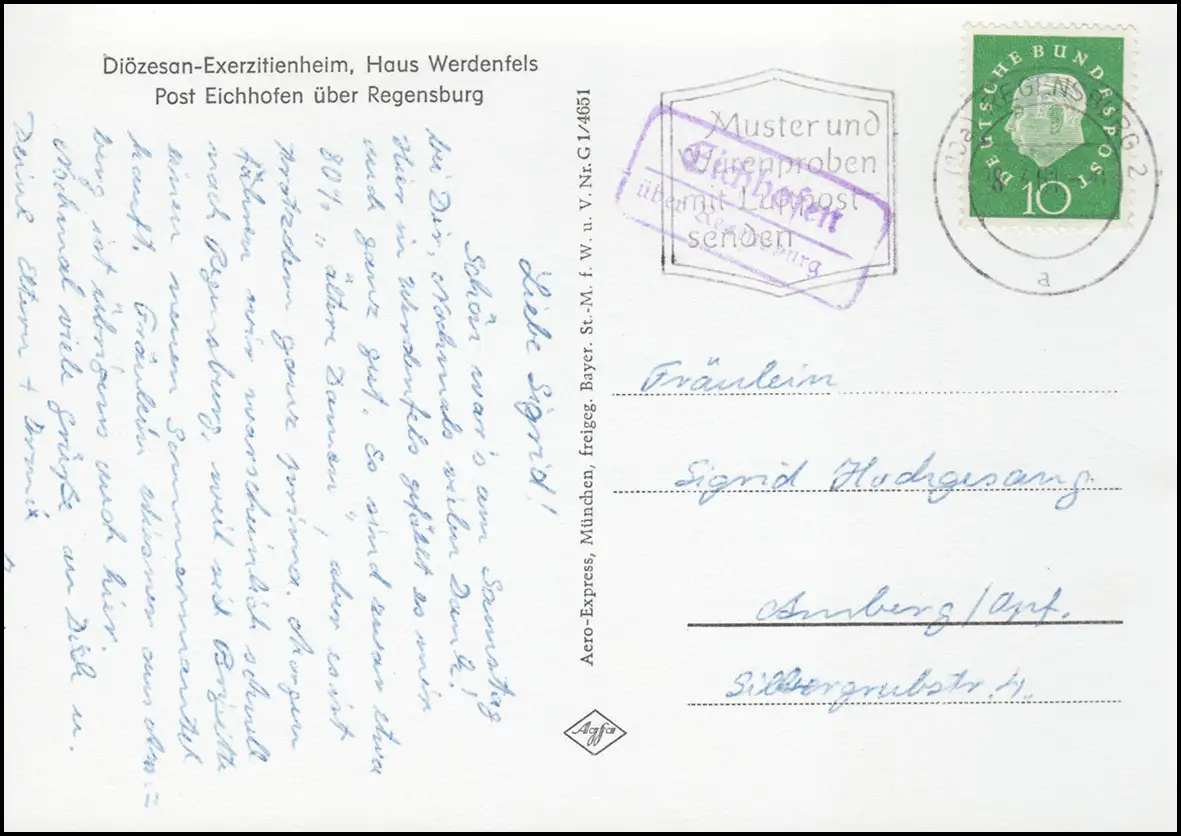 Diözesan-Exerzitienheim, Haus Werdenfels
Post Eichhofen über Regensburg
Liebe Sigrid!
Schön war's am Samstag
bei Dir, Nochmals vielen Dank!
Hier in Werdenfels gefällt es mir
auch ganz gut. Es sind zwar etwa
80% „ältere Damen", aber es ist
trotzdem ganz prima. Morgen
fahren wir warscheinlich schnell
nach Regensburg, weil sich Brigitte
einen neuen Sommermantel
kauft. Fräulein aus Am=
berg ist übrigens auch hier.
Nochmal viele Grüße an Dich u.
Deine Eltern
Aero-Express, München, freigeg. Bayer. St.-M. f. W. u. V. Nr. G 1/4651
Agfa
Muster und
Warenproben
mit Luftpost
senden
Eichhofen
über Regensburg
REGENSBURG 2
a
DEUTSCHE BUNDESPOST
10
Fräulein
Sigrid Hochgesang
Amberg/Opf.
Silbergrubstr. 4.